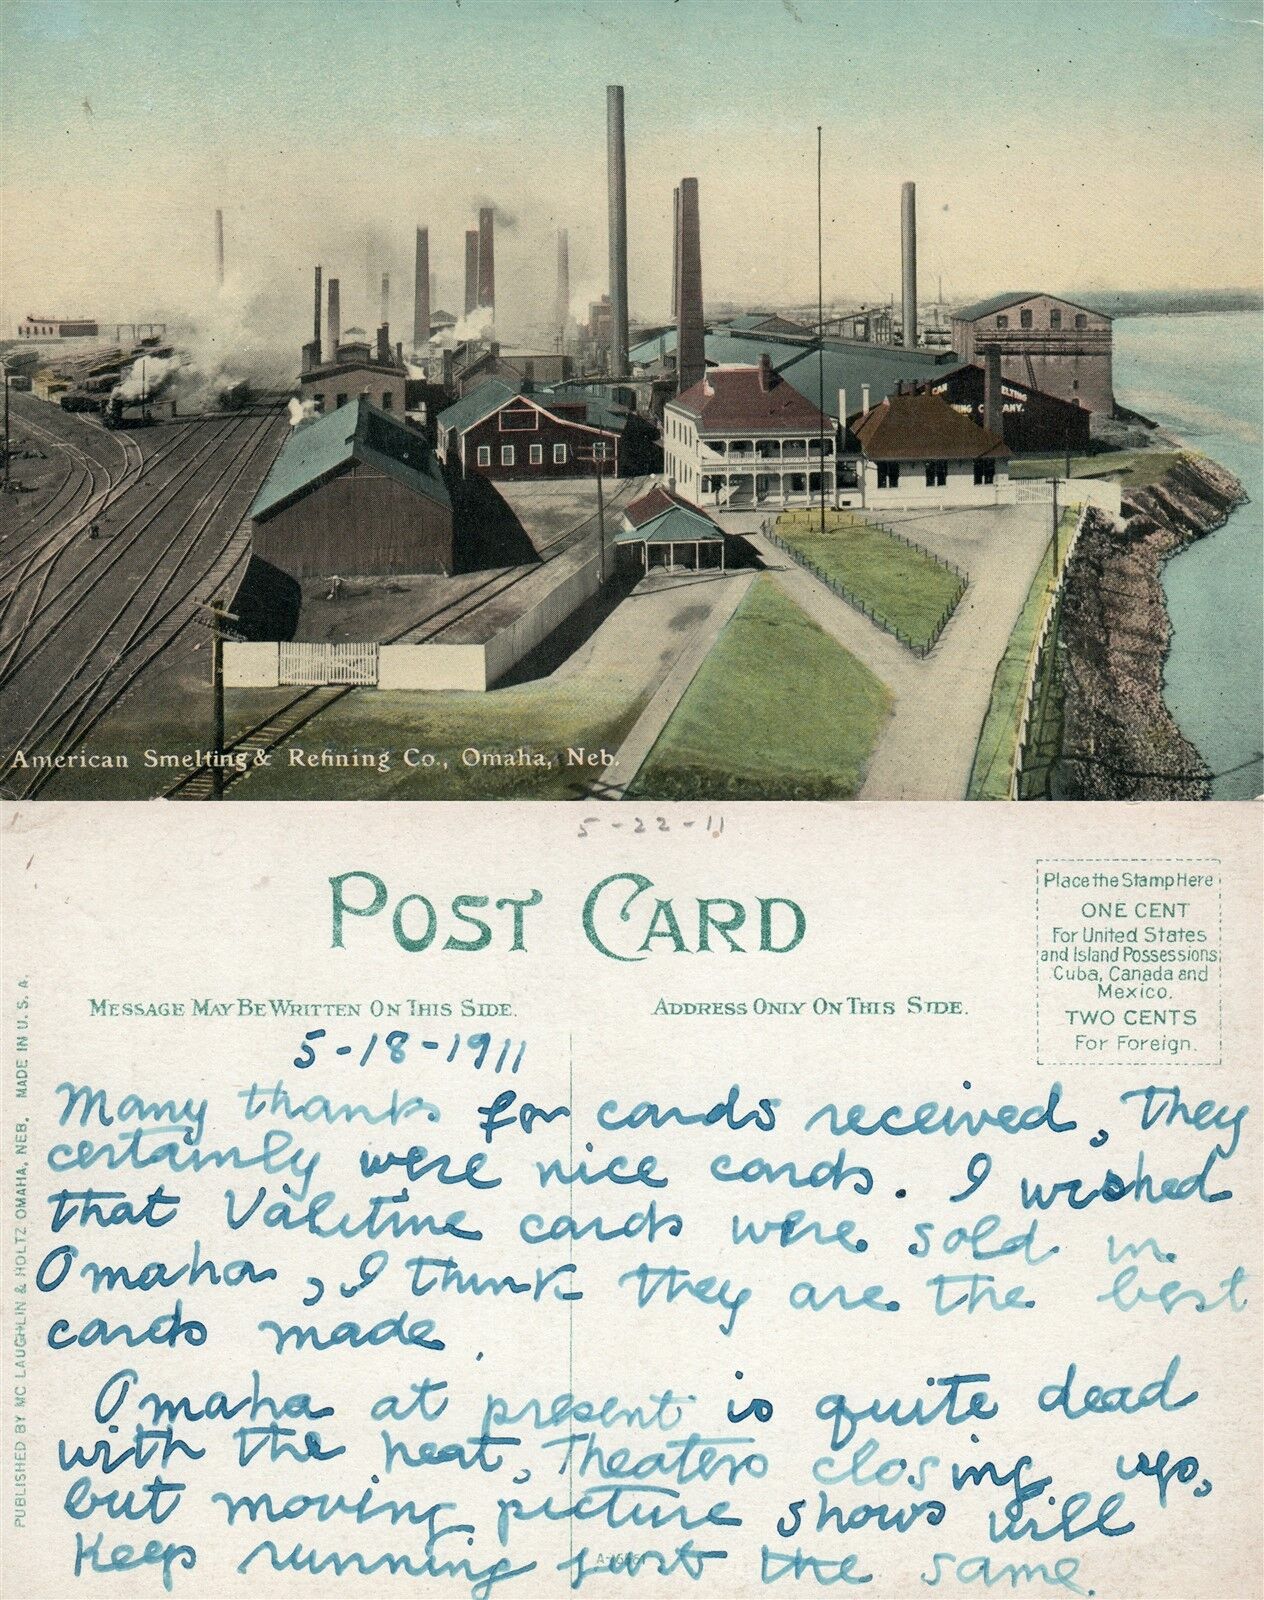 American Smelting & Refining Co., Omaha, Neb.
5-22-11
POST CARD
Place the Stamp Here
ONE CENT
For United States
and Island Possessions,
Cuba, Canada and
Mexico.
TWO CENTS
For Foreign.
MESSAGE MAY BE WRITTEN ON THIS SIDE.
ADDRESS ONLY ON THIS SIDE.
PUBLISHED BY MC LAUGHLIN & HOLTZ OMAHA, NEB. MADE IN U. S. A.
5-18-1911
Many thanks for cards received, they
certainly were nice cards. I wished
that Valetine cards were sold in
Omaha, I think they are the best
cards made.
Omaha at present is quite dead
with the heat, Theaters closing up,
but moving picture shows will
keep running just the same.